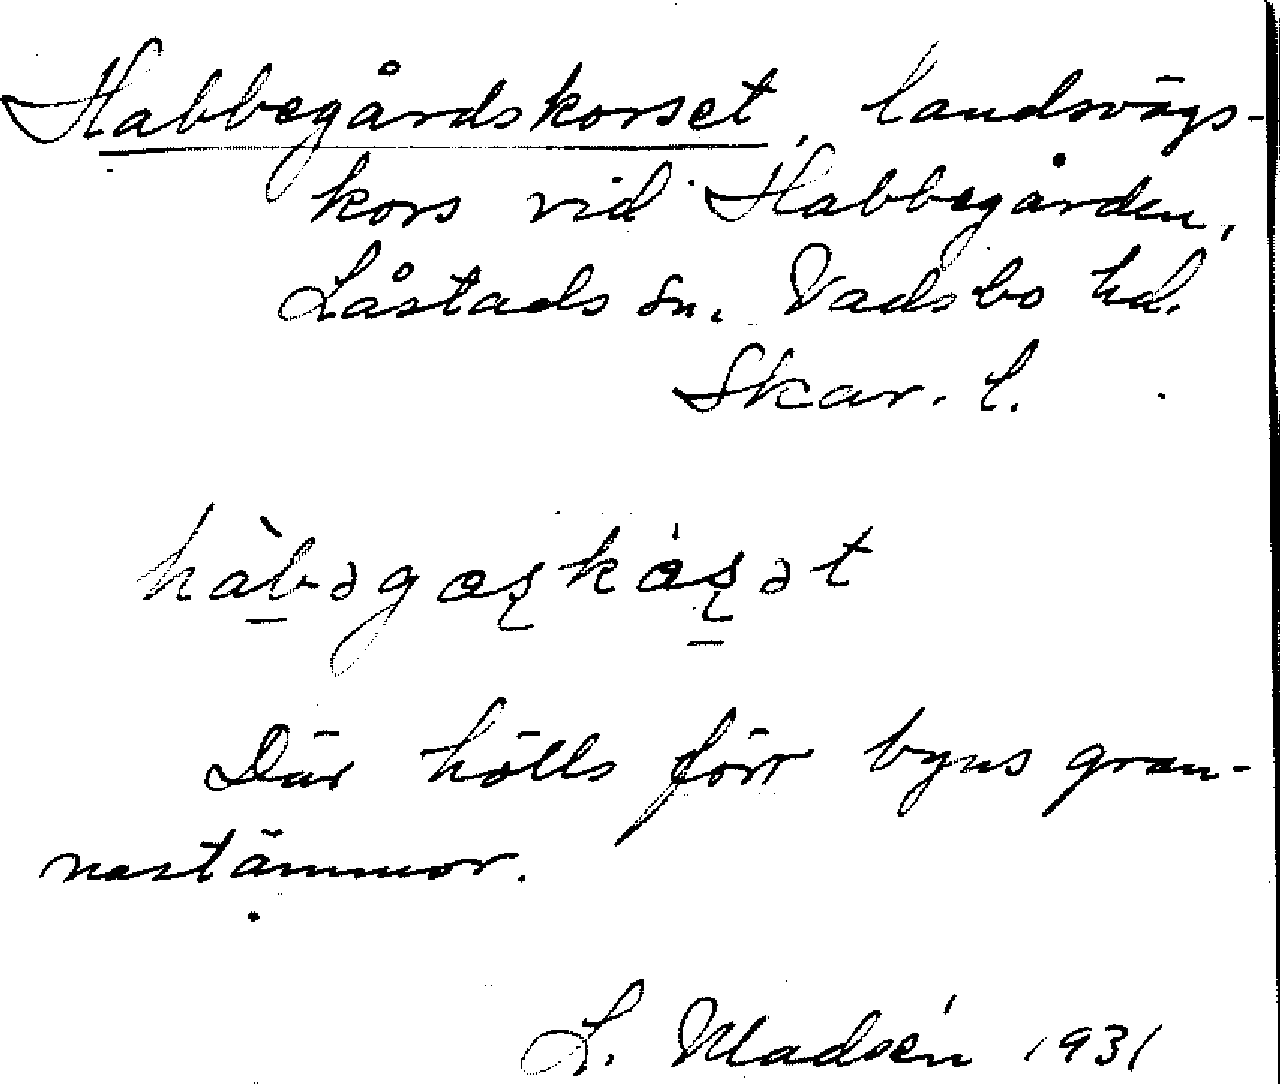 Habbegårdskorset, landsvägs-
kors vid Habbegården,
Låstads sn. Vadsbo hd.
Skar. l.
Där hölls förr byns gran-
nastämmor.
L. Madsén 1931